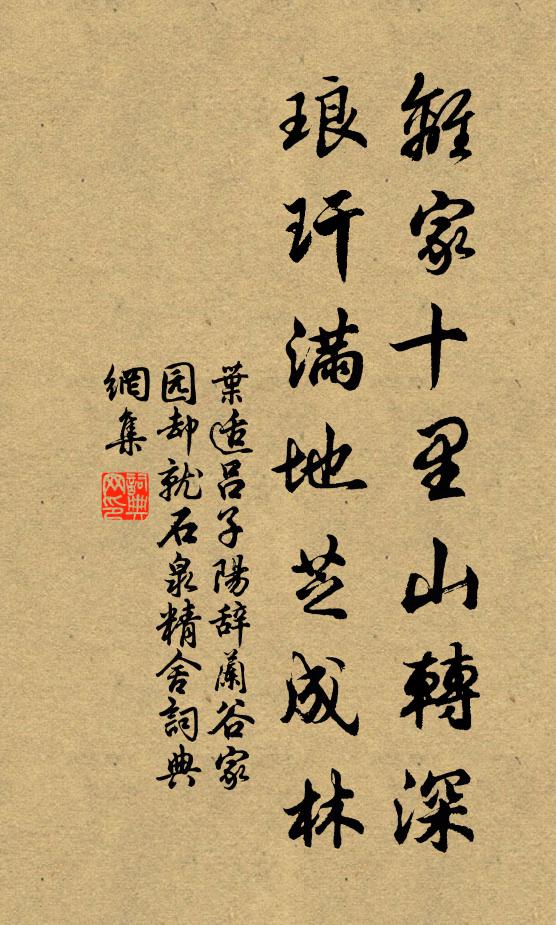 離家十里山轉深
琅玕滿地芝成林
葉适呂子陽辭蘭谷家
园却就石泉精舍詞典
網集
詞典
网印